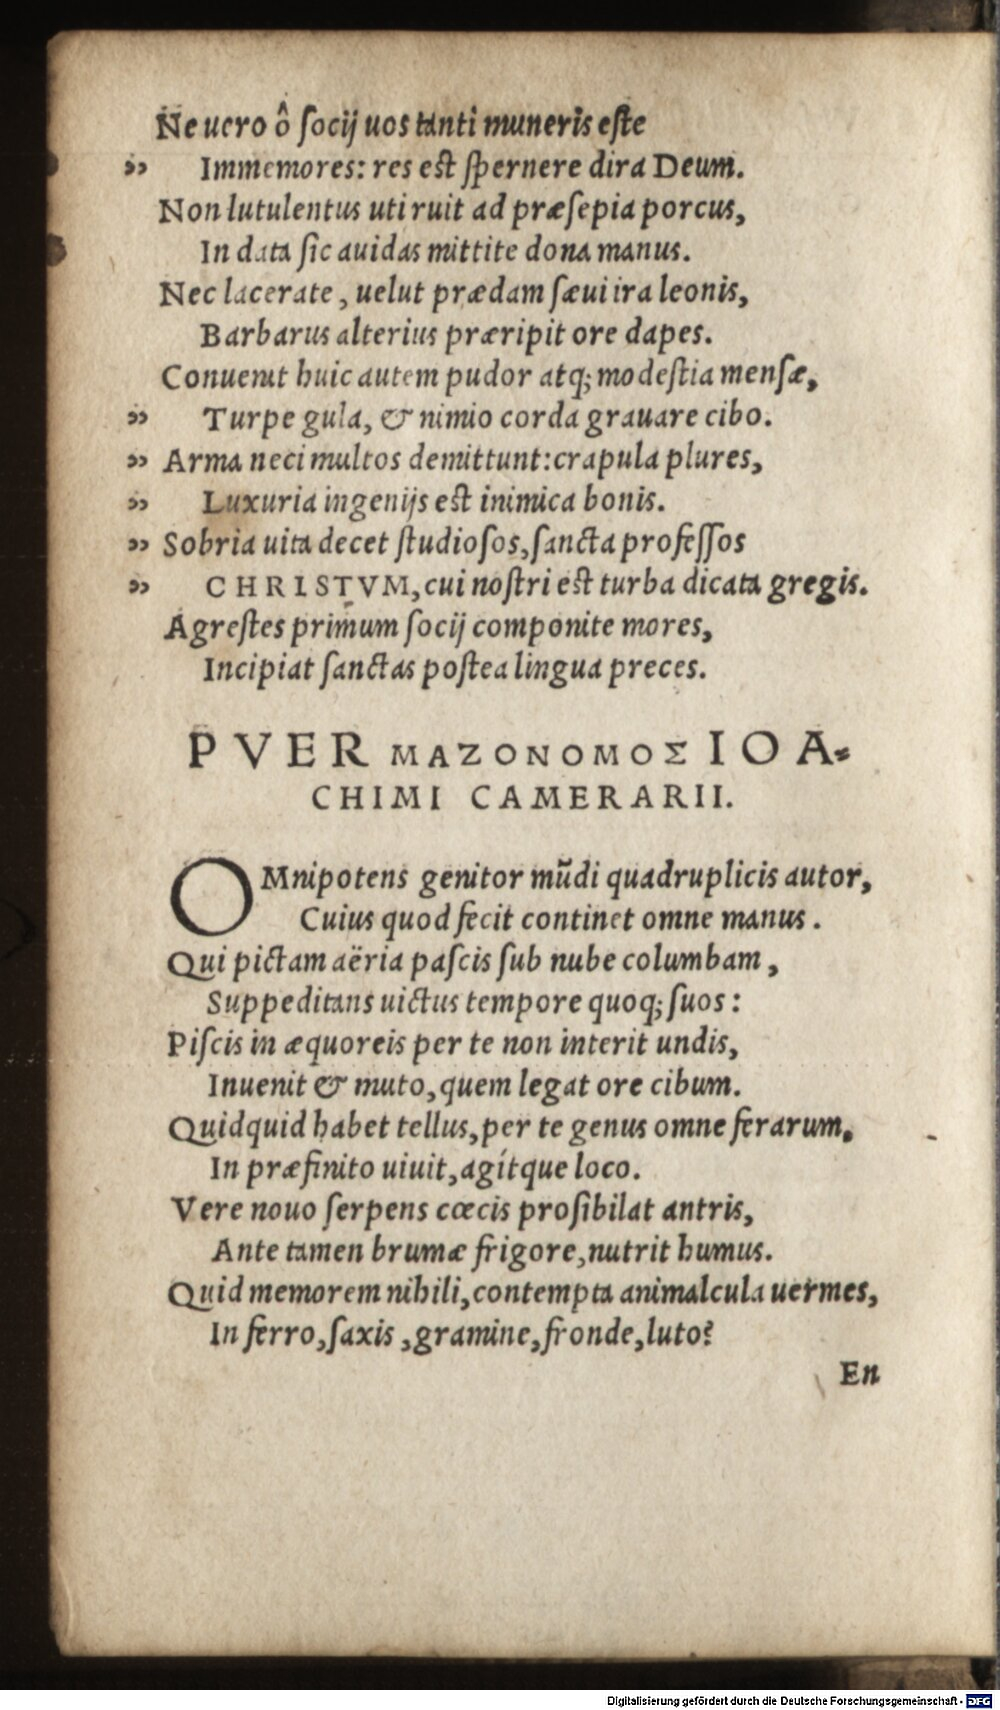 Ne uero ô ſocij uos tanti muneris eſte
„ Immemores: res eſt ſpernere dira Deum.
Non lutulentus uti ruit ad præſepia porcus,
In data ſic auidas mittite dona manus.
Nec lacerate, uelut prædam ſæui ira leonis,
Barbarus alterius præripit ore dapes.
Conuenit huic autem pudor atq; modeſtia menſæ,
„ Turpe gula, & nimio corda grauare cibo.
„ Arma neci multos demittunt: crapula plures,
„ Luxuria ingenijs eſt inimica bonis.
„ Sobria uita decet ſtudioſos, ſancta profeſſos
„ CHRISTVM, cui noſtri eſt turba dicata gregis.
Agreſtes primum ſocij componite mores,
Incipiat ſanctas poſtea lingua preces.
PVER ΜΑΖΟΝΟΜΟΣ IOA-
CHIMI CAMERARII.
OMnipotens genitor mũdi quadruplicis autor,
Cuius quod fecit continet omne manus.
Qui pictam aëria paſcis ſub nube columbam,
Suppeditans uictus tempore quoq; ſuos:
Piſcis in æquoreis per te non interit undis,
Inuenit & muto, quem legat ore cibum.
Quidquid habet tellus, per te genus omne ferarum,
In præfinito uiuit, agítque loco.
Vere nouo ſerpens cœcis proſibilat antris,
Ante tamen brumæ frigore, nutrit humus.
Quid memorem nihili, contempta animalcula uermes,
In ferro, ſaxis, gramine, fronde, luto?
En
Digitalisierung gefördert durch die Deutsche Forschungsgemeinschaft - DFG